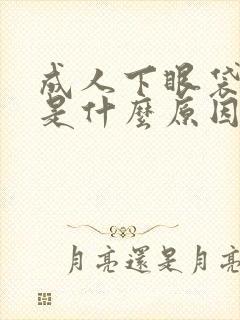 成人下眼袋
是什麼原因
月亮還是月亮